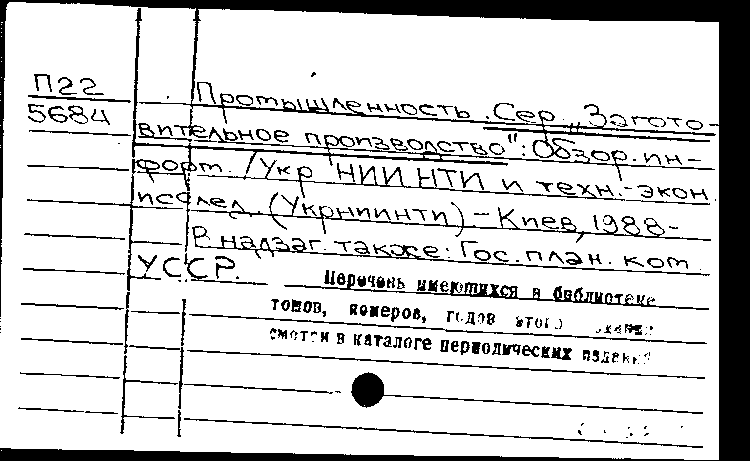 П22
5684
Промышленность. Сер. „Загото-
вительное производство": Обзор. ин-
форм. / Укр НИИ НТИ и техн.-экон.
исслед. (Укрниинти) – Киев, 1988-
В надзаг. также: Гос. план. ком.
УССР.
Перечень имеющихся в библиотеке
томов, номеров, годов этого
смотри в каталоге периодических изданий